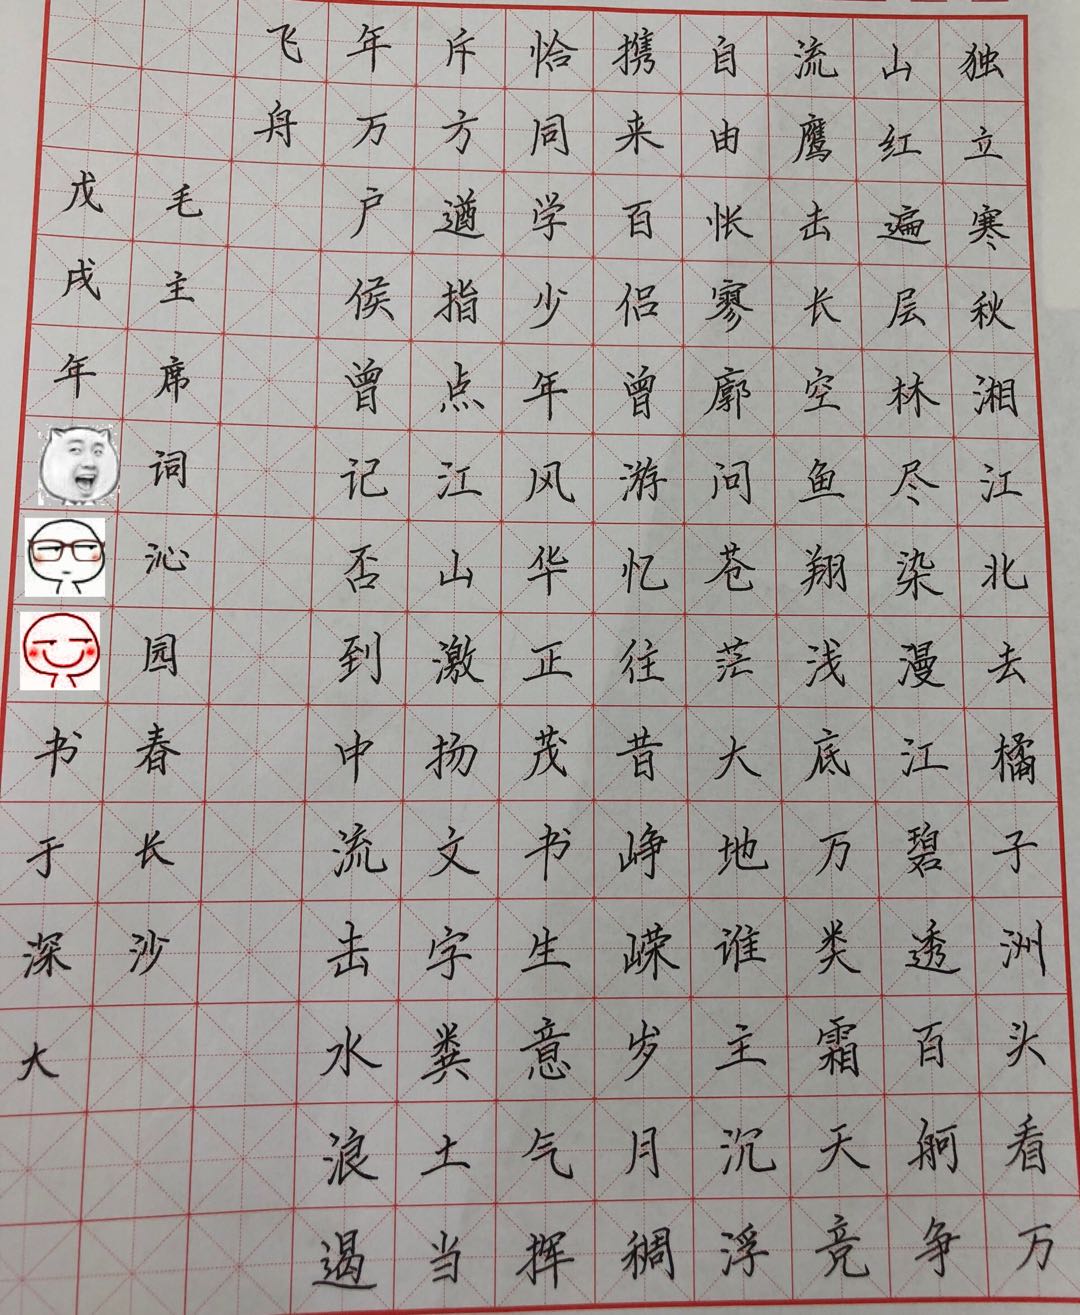 独立寒秋湘江北去橘子洲头看万
山红遍层林尽染漫江碧透百舸争
流鹰击长空鱼翔浅底万类霜天竞
自由怅寥廓问苍茫大地谁主沉浮
携来百侣曾游忆往昔峥嵘岁月稠
恰同学少年风华正茂书生意气挥
斥方遒指点江山激扬文字粪土当
年万户侯曾记否到中流击水浪遏
飞舟
毛主席词沁园春长沙
戊戌年书于深大